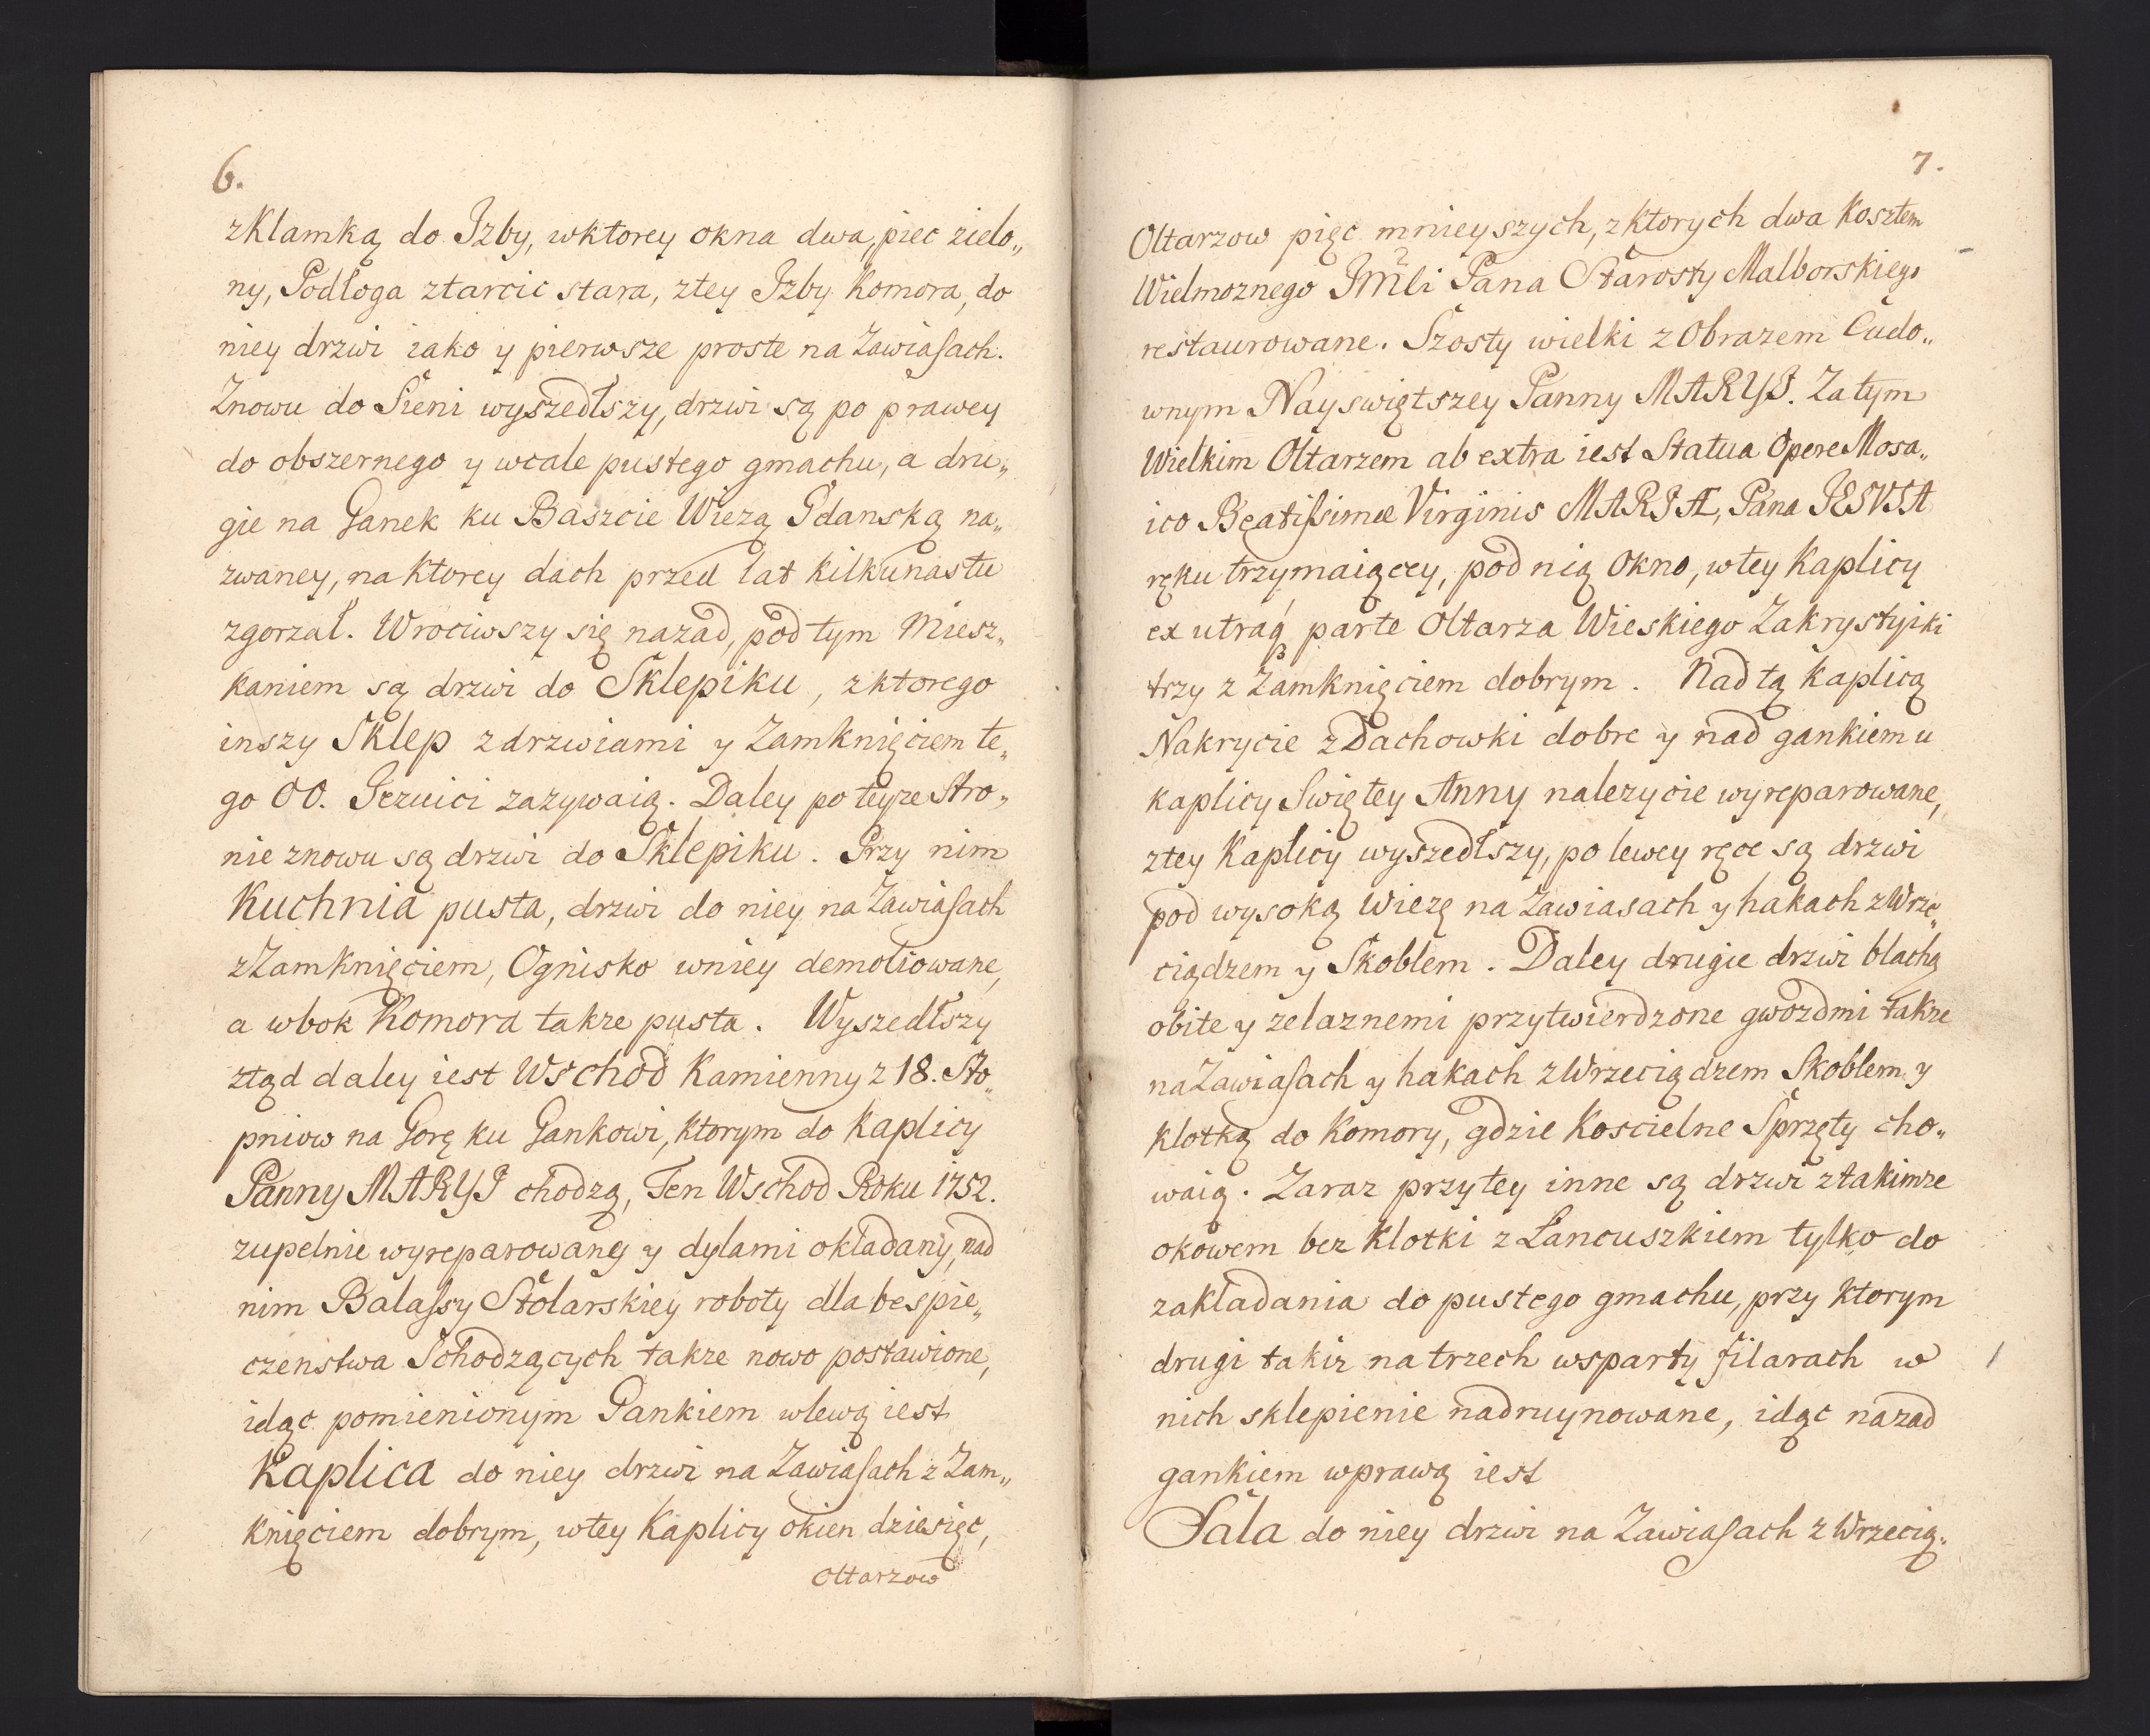 6.
zKlamką do Izby, wktorey okna dwa, piec zielo„
ny, Podłoga ztarcic stara, ztey Izby Komora, do
niey drzwi iako y pierwsze proste na Zawiaſach.
Znowu do Sieni wyszedłszy, drzwi są po prawey
do obszernego y wcale pustego gmachu, a dru„
gie na Ganek ku Baszcie Wieżą Gdanską na„
zwaney, na Ktorey dach przed lat kilkunastu
zgorzał. Wrociwszy się nazad, pod tym Miesz„
kaniem są drzwi do Sklepiku, z ktorego
inszy Sklep z drzwiami y Zamknięciem te„
go OO. Jezuici zazywaią. Daley po teyze Stro„
nie znowu są drzwi do Sklepiku. Przy nim
Kuchnia pusta, drzwi do niey na Zawiaſach
zZamknięciem, Ognisko wniey demoliowane,
a wbok Komora takze pusta. Wyszedłszy
ztąd daley iest Wschod Kamienny z 18. Sto„
pniow na Gorę ku Gankowi, ktorym do Kaplicy
Panny MARYI chodzą, Ten Wschod Roku 1752.
zupelnie wyreparowany y dylami okładany, nad
nim Balaſsy Stolarskiey roboty dla bespie„
czenstwa Schodzących takze nowo postawione,
idąc pomienionym Gankiem wlewą iest
Kaplica do niey drzwi na Zawiaſach z Zam„
knięciem dobrym, wtey Kaplicy okien dziesięc,
Ołtarzow
7.
Ołtarzow pięc mnieyszych, z ktorych dwa Kosztem
Wielmoznego Pana Starosty Malborskiego
restaurowane. Szosty wielki z Obrazem Cudo„
wnym Nayswiętszey Panny MARYI. Za tym
Wielkim Ołtarzem ab extra iest Statua Opere Mosa„
ico Beatiſsimæ Virginis MARIÆ, Pana IESUSA
ręku trzymaiącey, pod nią Okno, wtey Kaplicy
ex utraq parte Ołtarza Wieskiego Zakrystyiki
trzy z Zamknięciem dobrym. Nad tą Kaplicą
Nakrycie z Dachowki dobre y nad gankiem u
kaplicy Swiętey Anny nalezycie wyreparowane,
ztey Kaplicy wyszedłszy, po lewey ręce są drzwi
pod wysoką Wiezę na Zawiasach y hakach z Wrze„
ciądzem y Skoblem. Daley drugie drzwi blachą
obite y zelaznemi przytwierdzone gwozdmi takze
na Zawiaſach y hakach z Wrzeciądzem Skoblem y
klotką do Komory, gdzie Koscielne Sprzęty cho„
waią. Zaraz przytey inne są drzwi ztakimze
okowem bez Klotki z Łancuszkiem tylko do
zakładania do pustego gmachu, przy ktorym
drugi takiz na trzech wsparty filarach w
nich sklepienie nadruynowane, idąc nazad
gankiem wprawą iest
Sala do niey drzwi na Zawiaſach z Wrzecią„